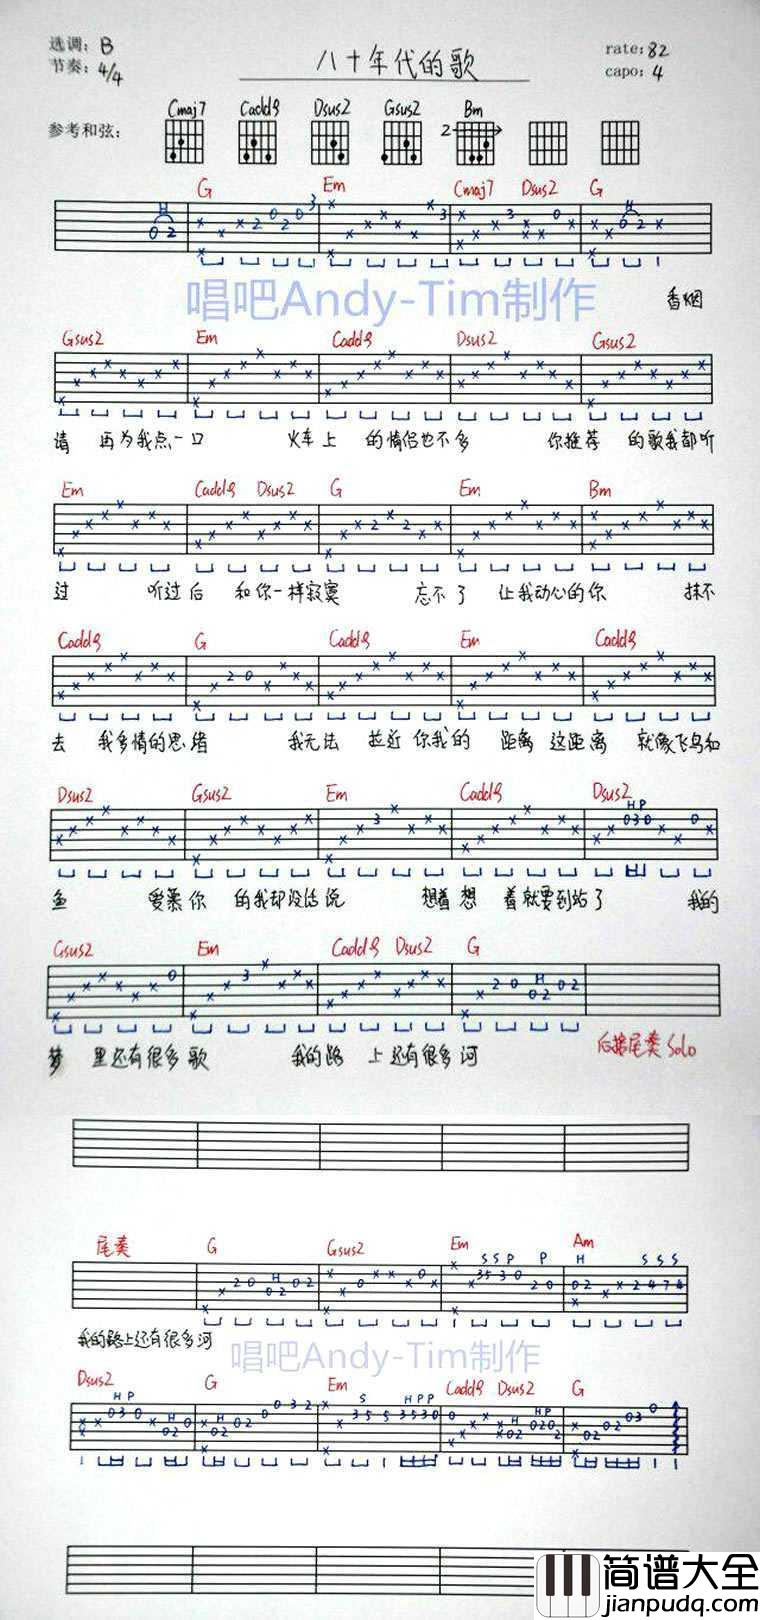 选调: B
节奏: 4/4
八十年代的歌
rate: 82
capo: 4
参考和弦:
Cmaj7 Cadd9 Dsus2 Gsus2 Bm
2
G Em Cmaj7 Dsus2 G
唱吧Andy-Tim制作
香烟
Gsus2 Em Cadd9 Dsus2 Gsus2
请 再为我点一口 火车上 的情侣也不多 你推荐 的歌我都听
Em Cadd9 Dsus2 G Em Bm
过 听过后 和你一样寂寞 忘不了 让我动心的你 抹不
Cadd9 G Cadd9 Em Cadd9
去 我多情的思绪 我无法 拉近你我的 距离 这距离 就像飞鸟和
Dsus2 Gsus2 Em Cadd9 Dsus2
鱼 爱慕你 的我却没法说 想着想 着就要到站了 我的
Gsus2 Em Cadd9 Dsus2 G
梦 里还有很多歌 我的路 上还有很多河
后接尾奏 Solo
尾奏 G Gsus2 Em Am
我的路上还有很多河
唱吧Andy-Tim制作
Dsus2 G Em Cadd9 Dsus2 G
简谱大全
jianpudq.com